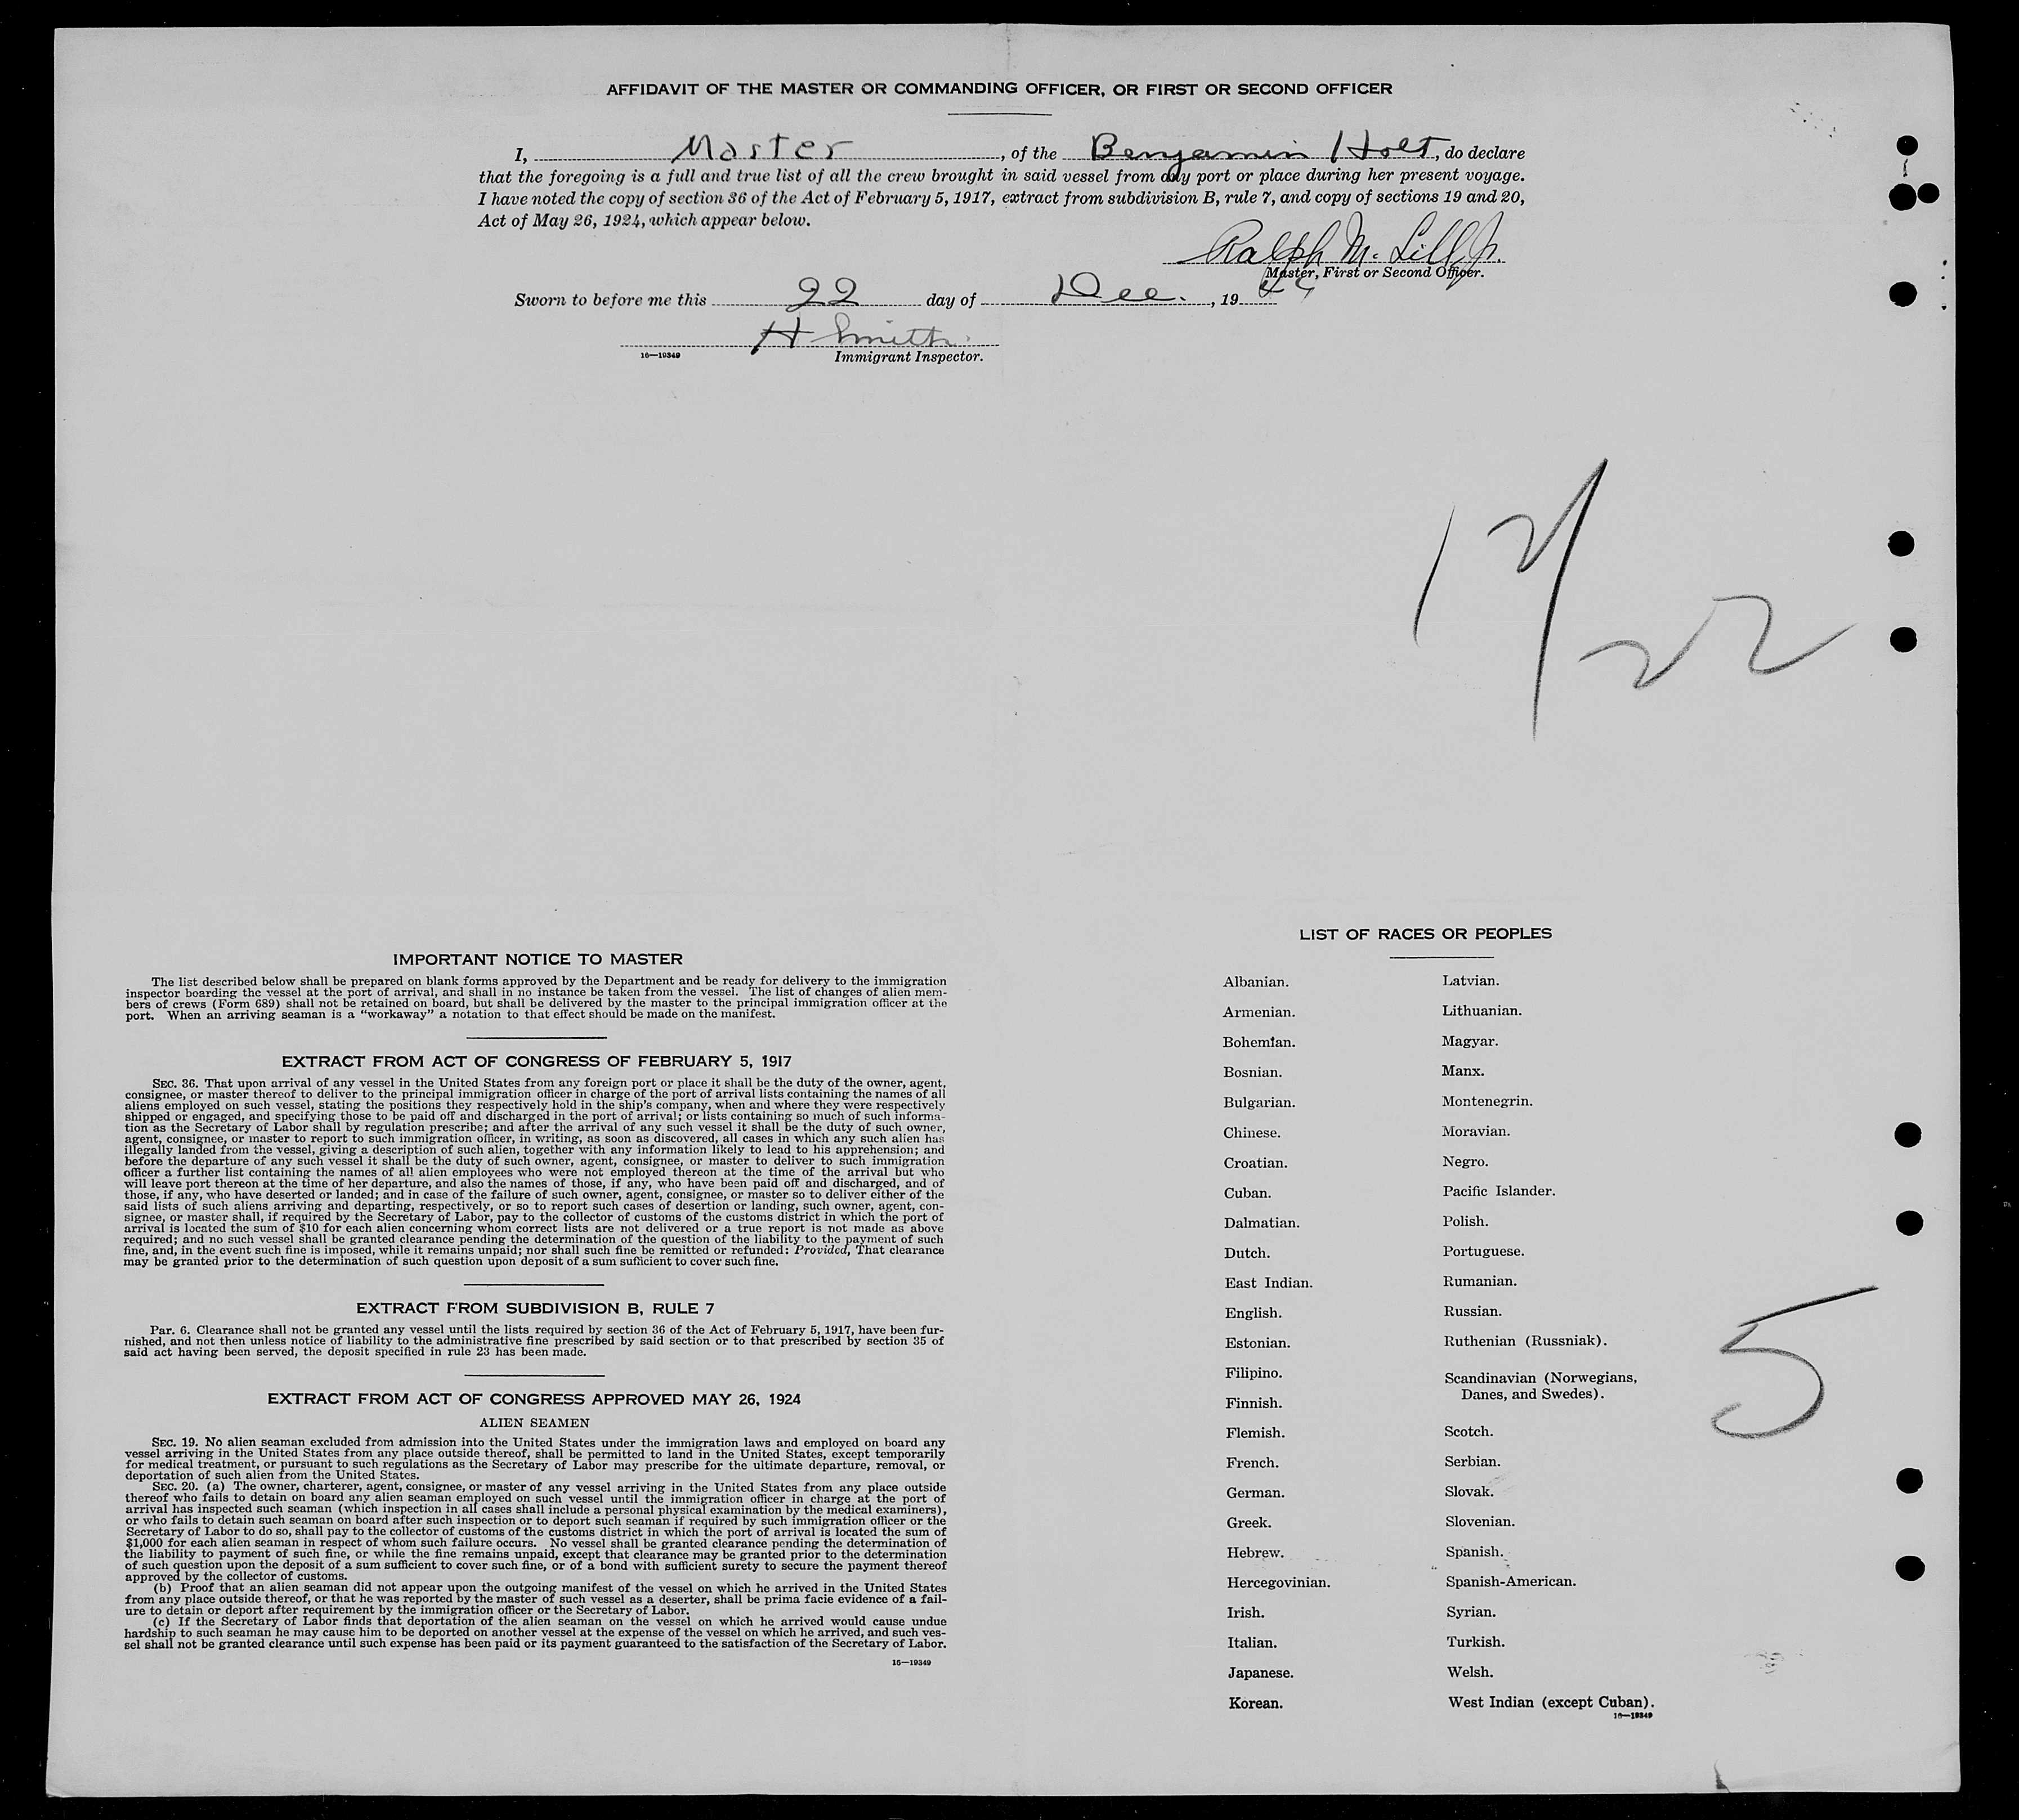 AFFIDAVIT OF THE MASTER OR COMMANDING OFFICER, OR FIRST OR SECOND OFFICER
I, Master, of the Benjamin Holt, do declare
that the foregoing is a full and true list of all the crew brought in said vessel from any port or place during her present voyage.
I have noted the copy of section 36 of the Act of February 5, 1917, extract from subdivision B, rule 7, and copy of sections 19 and 20,
Act of May 26, 1924, which appear below.
Ralph M. Lill Jr.
Master, First or Second Officer.
Sworn to before me this 22 day of Dec., 19
H Smith
16—19349 Immigrant Inspector.
12/22
IMPORTANT NOTICE TO MASTER
The list described below shall be prepared on blank forms approved by the Department and be ready for delivery to the immigration
inspector boarding the vessel at the port of arrival, and shall in no instance be taken from the vessel. The list of changes of alien mem-
bers of crews (Form 689) shall not be retained on board, but shall be delivered by the master to the principal immigration officer at the
port. When an arriving seaman is a "workaway" a notation to that effect should be made on the manifest.
EXTRACT FROM ACT OF CONGRESS OF FEBRUARY 5, 1917
SEC. 36. That upon arrival of any vessel in the United States from any foreign port or place it shall be the duty of the owner, agent,
consignee, or master thereof to deliver to the principal immigration officer in charge of the port of arrival lists containing the names of all
aliens employed on such vessel, stating the positions they respectively hold in the ship's company, when and where they were respectively
shipped or engaged, and specifying those to be paid off and discharged in the port of arrival; or lists containing so much of such informa-
tion as the Secretary of Labor shall by regulation prescribe; and after the arrival of any such vessel it shall be the duty of such owner,
agent, consignee, or master to report to such immigration officer, in writing, as soon as discovered, all cases in which any such alien has
illegally landed from the vessel, giving a description of such alien, together with any information likely to lead to his apprehension; and
before the departure of any such vessel it shall be the duty of such owner, agent, consignee, or master to deliver to such immigration
officer a further list containing the names of all alien employees who were not employed thereon at the time of the arrival but who
will leave port thereon at the time of her departure, and also the names of those, if any, who have been paid off and discharged, and of
those, if any, who have deserted or landed; and in case of the failure of such owner, agent, consignee, or master so to deliver either of the
said lists of such aliens arriving and departing, respectively, or so to report such cases of desertion or landing, such owner, agent, con-
signee, or master shall, if required by the Secretary of Labor, pay to the collector of customs of the customs district in which the port of
arrival is located the sum of $10 for each alien concerning whom correct lists are not delivered or a true report is not made as above
required; and no such vessel shall be granted clearance pending the determination of the question of the liability to the payment of such
fine, and, in the event such fine is imposed, while it remains unpaid; nor shall such fine be remitted or refunded: Provided, That clearance
may be granted prior to the determination of such question upon deposit of a sum sufficient to cover such fine.
EXTRACT FROM SUBDIVISION B, RULE 7
Par. 6. Clearance shall not be granted any vessel until the lists required by section 36 of the Act of February 5, 1917, have been fur-
nished, and not then unless notice of liability to the administrative fine prescribed by said section or to that prescribed by section 35 of
said act having been served, the deposit specified in rule 23 has been made.
EXTRACT FROM ACT OF CONGRESS APPROVED MAY 26, 1924
ALIEN SEAMEN
SEC. 19. No alien seaman excluded from admission into the United States under the immigration laws and employed on board any
vessel arriving in the United States from any place outside thereof, shall be permitted to land in the United States, except temporarily
for medical treatment, or pursuant to such regulations as the Secretary of Labor may prescribe for the ultimate departure, removal, or
deportation of such alien from the United States.
SEC. 20. (a) The owner, charterer, agent, consignee, or master of any vessel arriving in the United States from any place outside
thereof who fails to detain on board any alien seaman employed on such vessel until the immigration officer in charge at the port of
arrival has inspected such seaman (which inspection in all cases shall include a personal physical examination by the medical examiners),
or who fails to detain such seaman on board after such inspection or to deport such seaman if required by such immigration officer or the
Secretary of Labor to do so, shall pay to the collector of customs of the customs district in which the port of arrival is located the sum of
$1,000 for each alien seaman in respect of whom such failure occurs. No vessel shall be granted clearance pending the determination of
the liability to payment of such fine, or while the fine remains unpaid, except that clearance may be granted prior to the determination
of such question upon the deposit of a sum sufficient to cover such fine, or of a bond with sufficient surety to secure the payment thereof
approved by the collector of customs.
(b) Proof that an alien seaman did not appear upon the outgoing manifest of the vessel on which he arrived in the United States
from any place outside thereof, or that he was reported by the master of such vessel as a deserter, shall be prima facie evidence of a fail-
ure to detain or deport after requirement by the immigration officer or the Secretary of Labor.
(c) If the Secretary of Labor finds that deportation of the alien seaman on the vessel on which he arrived would cause undue
hardship to such seaman he may cause him to be deported on another vessel at the expense of the vessel on which he arrived, and such ves-
sel shall not be granted clearance until such expense has been paid or its payment guaranteed to the satisfaction of the Secretary of Labor.
16—19349
LIST OF RACES OR PEOPLES
Albanian. Latvian.
Armenian. Lithuanian.
Bohemian. Magyar.
Bosnian. Manx.
Bulgarian. Montenegrin.
Chinese. Moravian.
Croatian. Negro.
Cuban. Pacific Islander.
Dalmatian. Polish.
Dutch. Portuguese.
East Indian. Rumanian.
English. Russian.
Estonian. Ruthenian (Russniak).
Filipino. Scandinavian (Norwegians,
Danes, and Swedes).
Finnish.
Flemish. Scotch.
French. Serbian.
German. Slovak.
Greek. Slovenian.
Hebrew. Spanish.
Hercegovinian. Spanish-American.
Irish. Syrian.
Italian. Turkish.
Japanese. Welsh.
Korean. West Indian (except Cuban).
16—19349
5